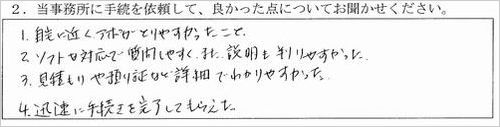 2. 当事務所に手続を依頼して、良かった点についてお聞かせください。
1. 目先に近くアポがとりやすかったこと
2. ソフトな対応で質問しやすく、また、説明も判りやすかった
3. 見積もりや預り証など詳細でわかりやすかった
4. 迅速に手続きを完了してもらえた。